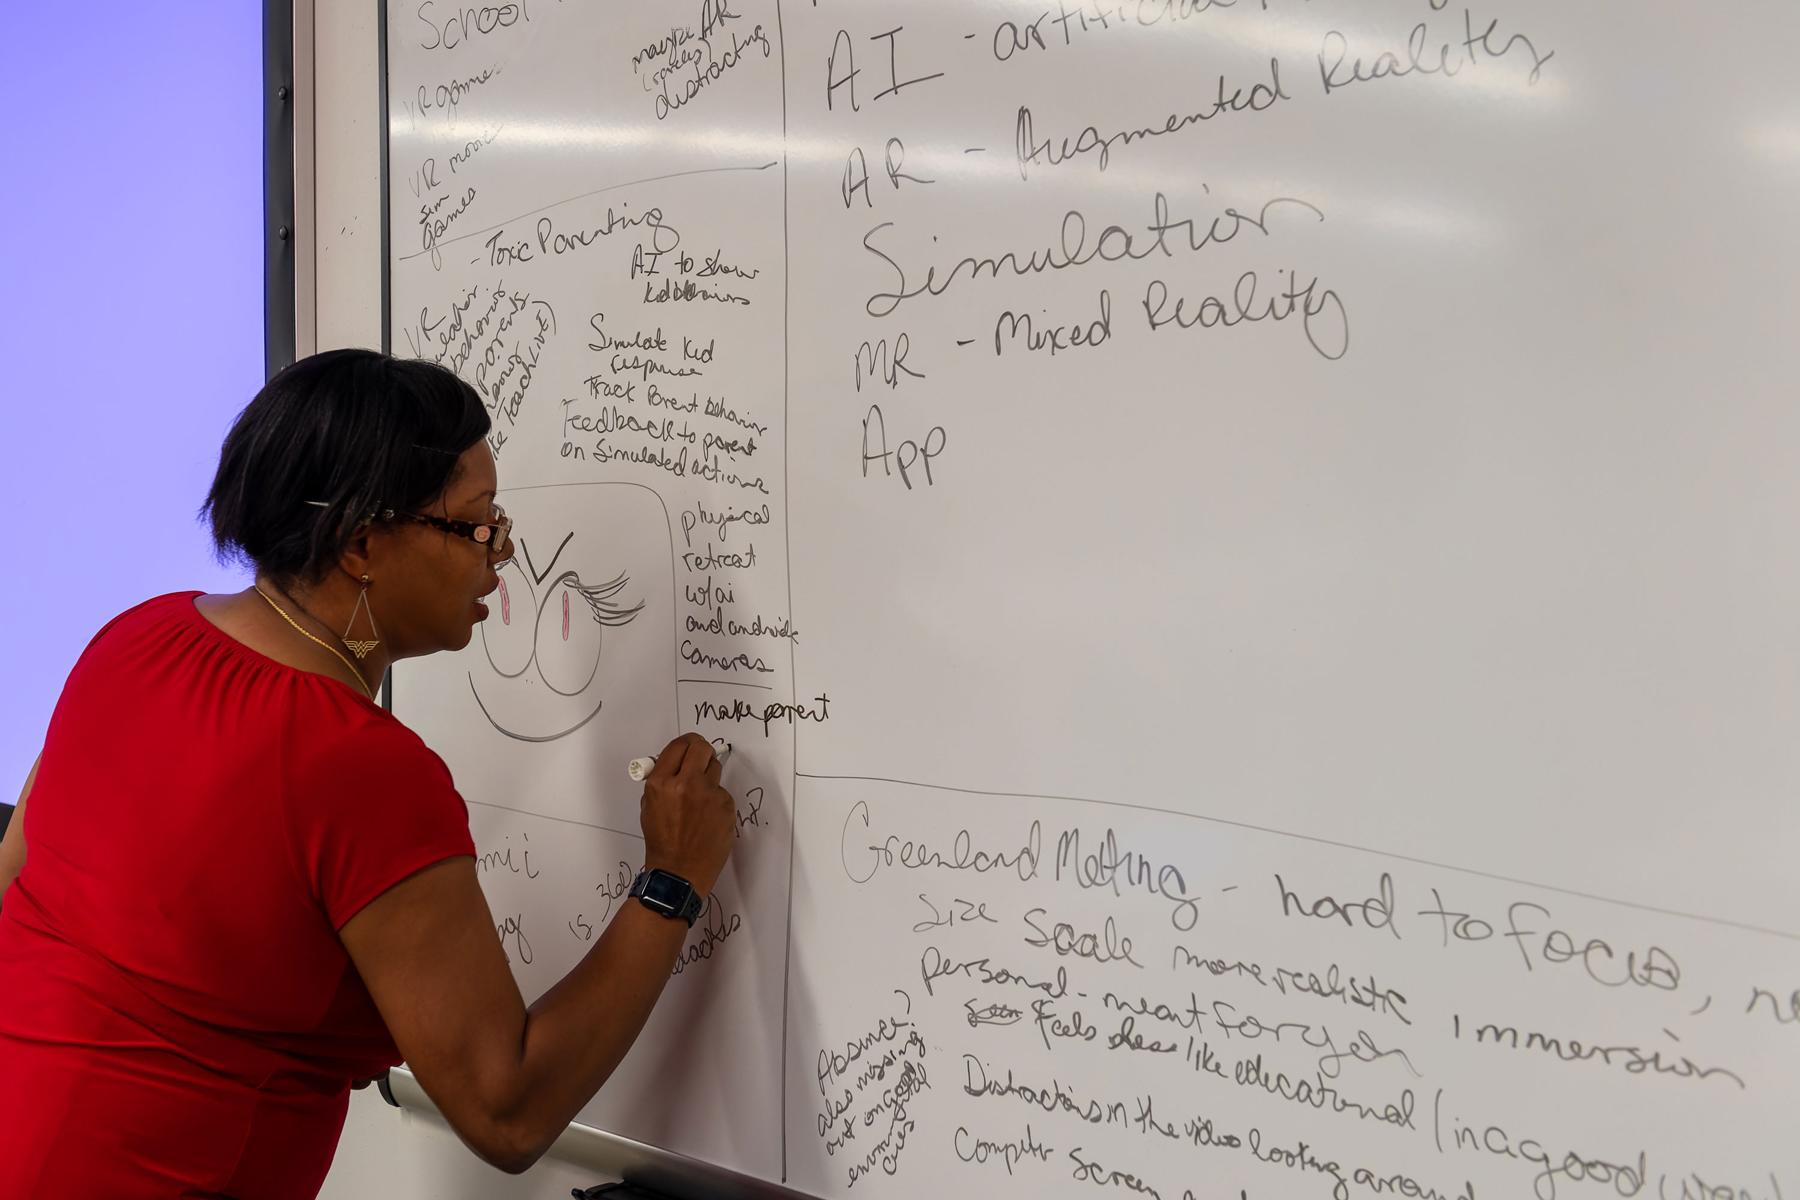 School
VR game
VR movie
Sim
games
maybe AR
distracting
- Toxic Parenting
VR
behaviors
parents
TeachLive)
AI to show
kid behaviors
Simulate kid
response
Track Parent behavior
Feedback to parent
on Simulated actions
physical
retreat
w/ai
and
cameras
make parent
mii
is 360
AI - artificial
AR - Augmented Reality
Simulation
MR - Mixed Reality
App
Greenland Melting - hard to focus,
Size Scale more realistic immersion
personal - meant for you
Feels like educational (in a good
Distractions in the video looking around
Computer Screen
Absence?
also missing
out on good
cues